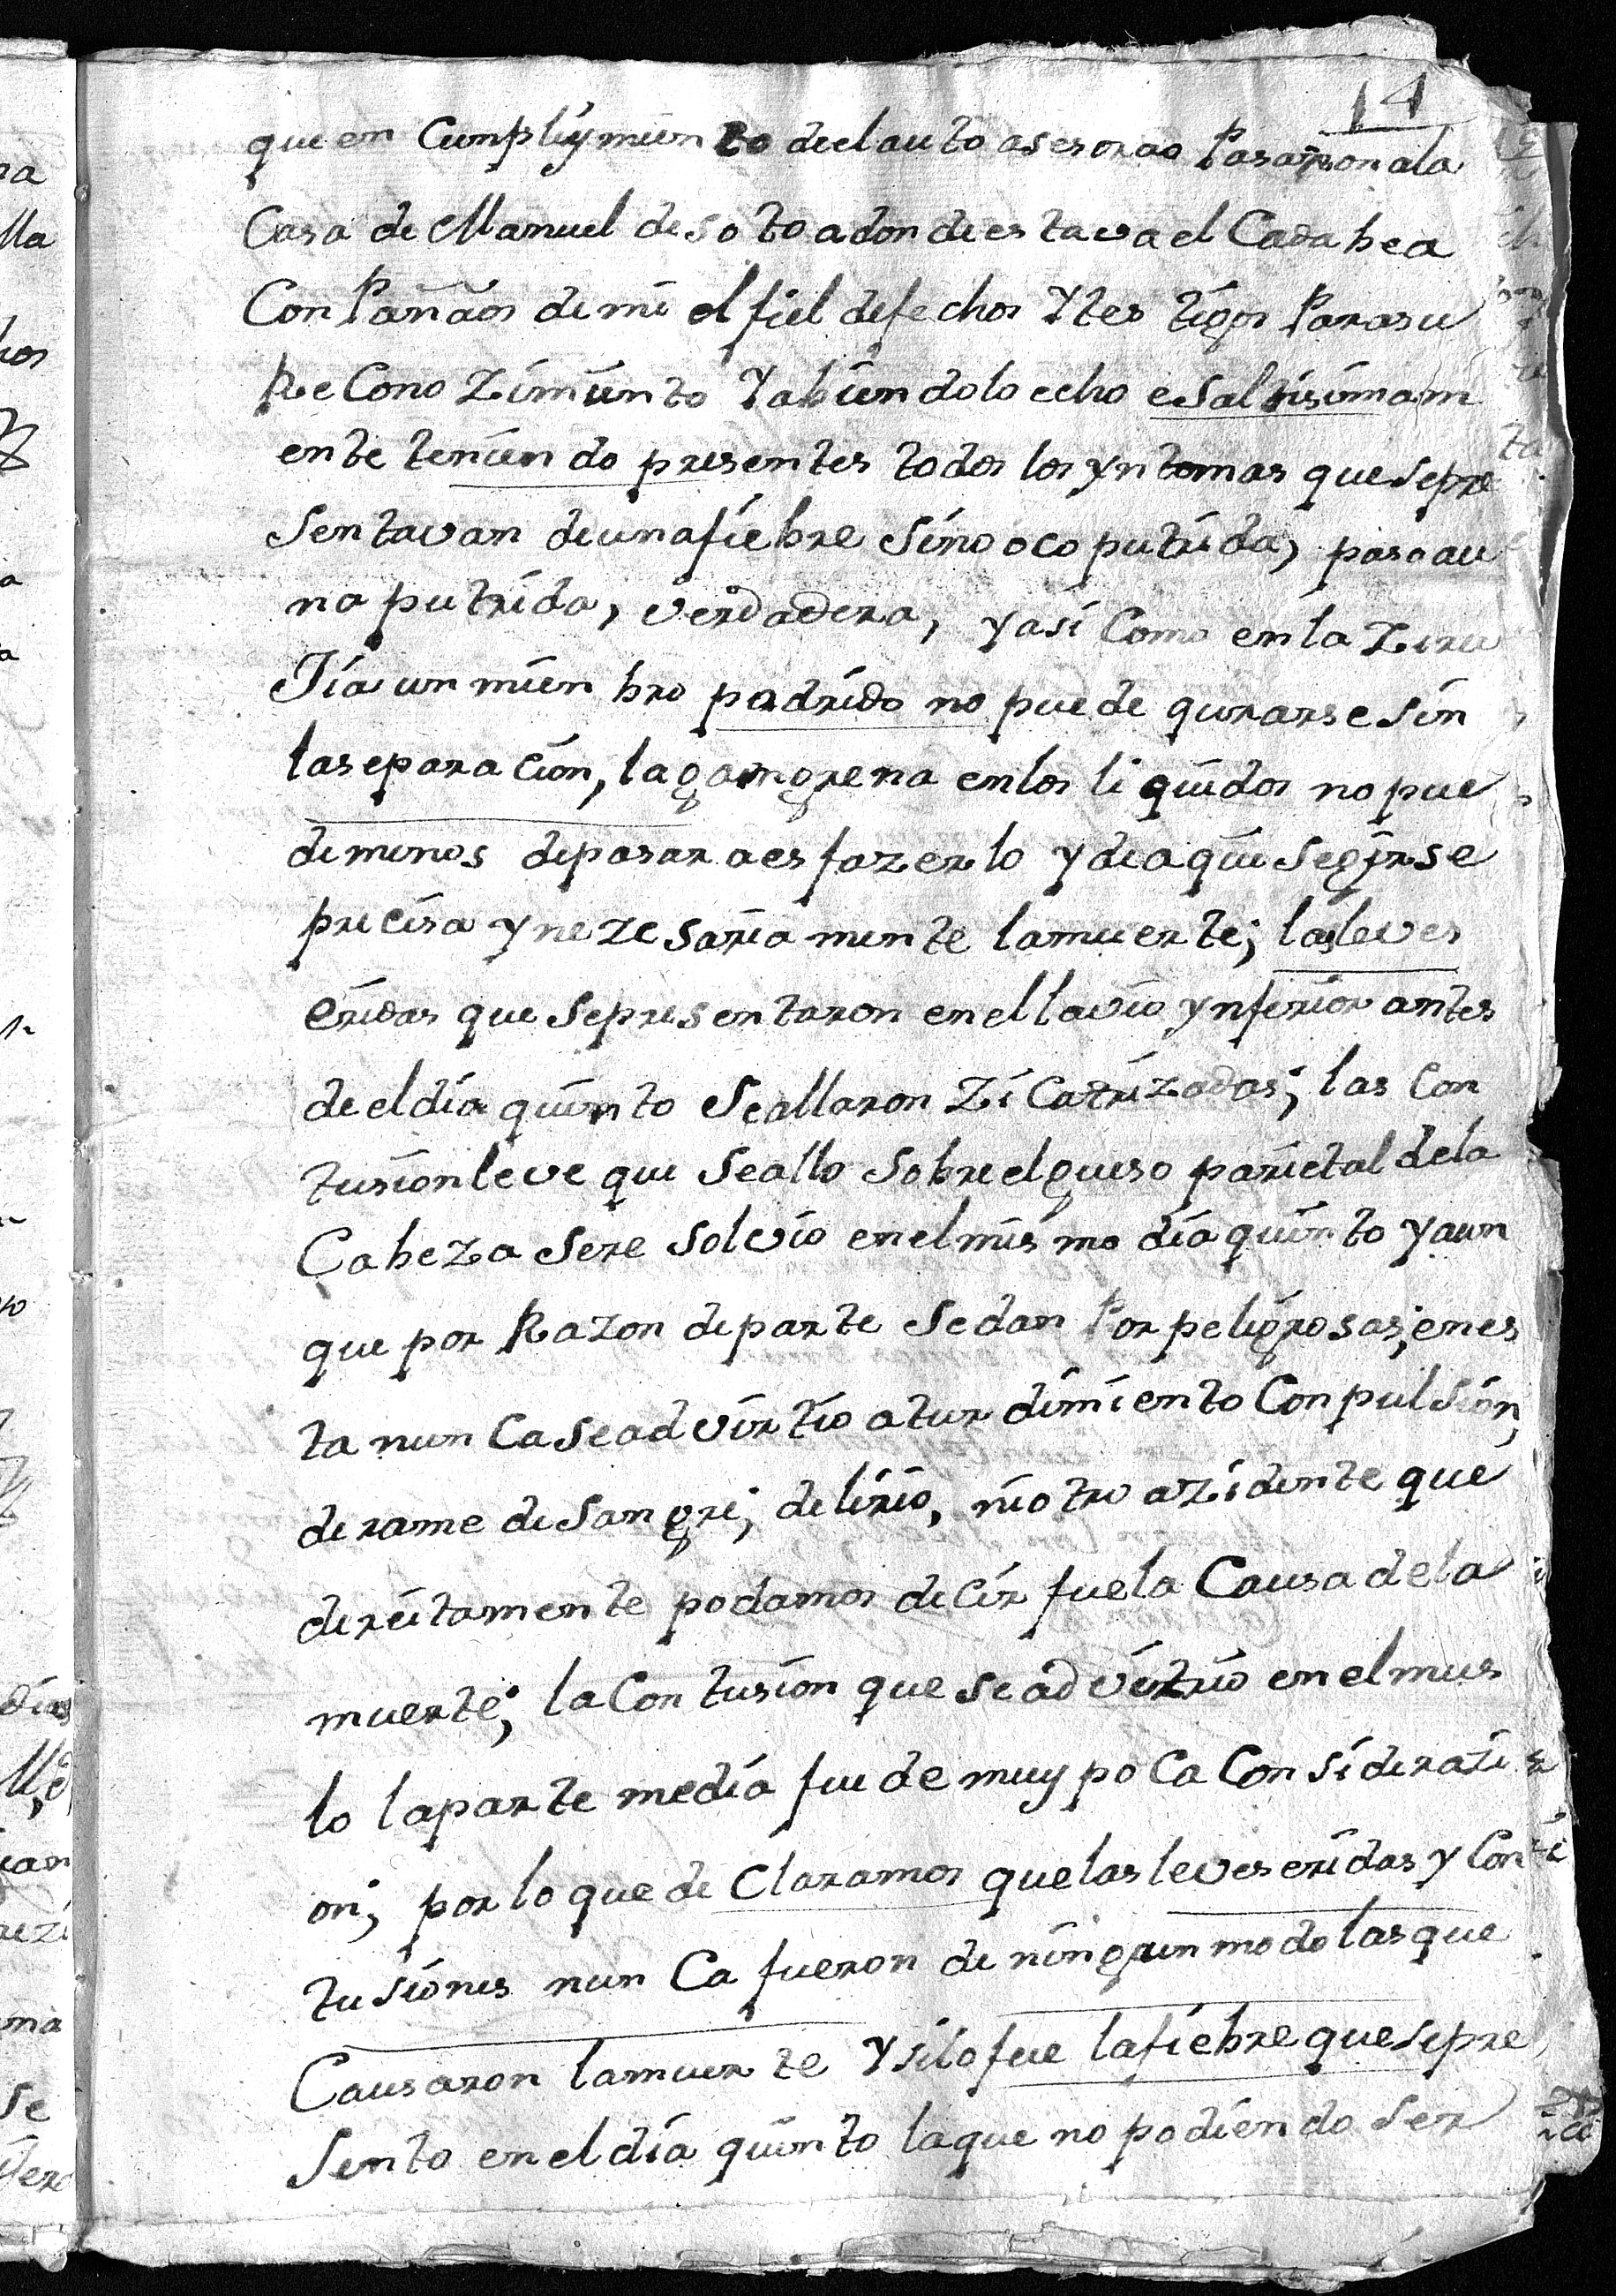 14
que en Cumplymiento de el auto asesorao Pasaron a la
Casa de Manuel de soto adonde estava el Cadabe a
Conpañaos de mi el fiel de fechos Y testigos Para su
ReConoZimiento Y abiendolo echo esaltisimam
ente teniendo presentes todos los yntomas que se pre
sentavan de una fiebre sinooco putrida, paso a u
na putrida, verdadera, y asi Como en la Ziru
Jia un mienbro padrido no puede qurarse sin
la separacion, la gamgrena en los liquidos no pue
de menos de pasar a esfazerlo y de aqui segirse
precisa y nezesariamente la muerte; las leves
eridas que se presentaron en el lavio ynferior antes
de el dia quinto se allaron ZiCatrizadas; las Con
tusion leve que se allo sobre el gueso parietal de la
Cabeza se resolvio en el mismo dia quinto y aun
que por Razon de parte se dan Por peligrosas; en es
ta nunCa se advirtio aturdimiento Conpulsion,
derame de sangre; delirio, ni otro azidente que
direitamente podamos decir fue la Causa de la
muerte; la Contusion que se advirtio en el mus
lo la parte media fue de muy poCa Considerazi
on; por lo que deClaramos que las leves eridas y Con
tusiones nunCa fueron de ningun modo las que
Causaron la muerte Y si lo fue la fiebre que se pre
sento en el dia quinto la que no podiendo ser